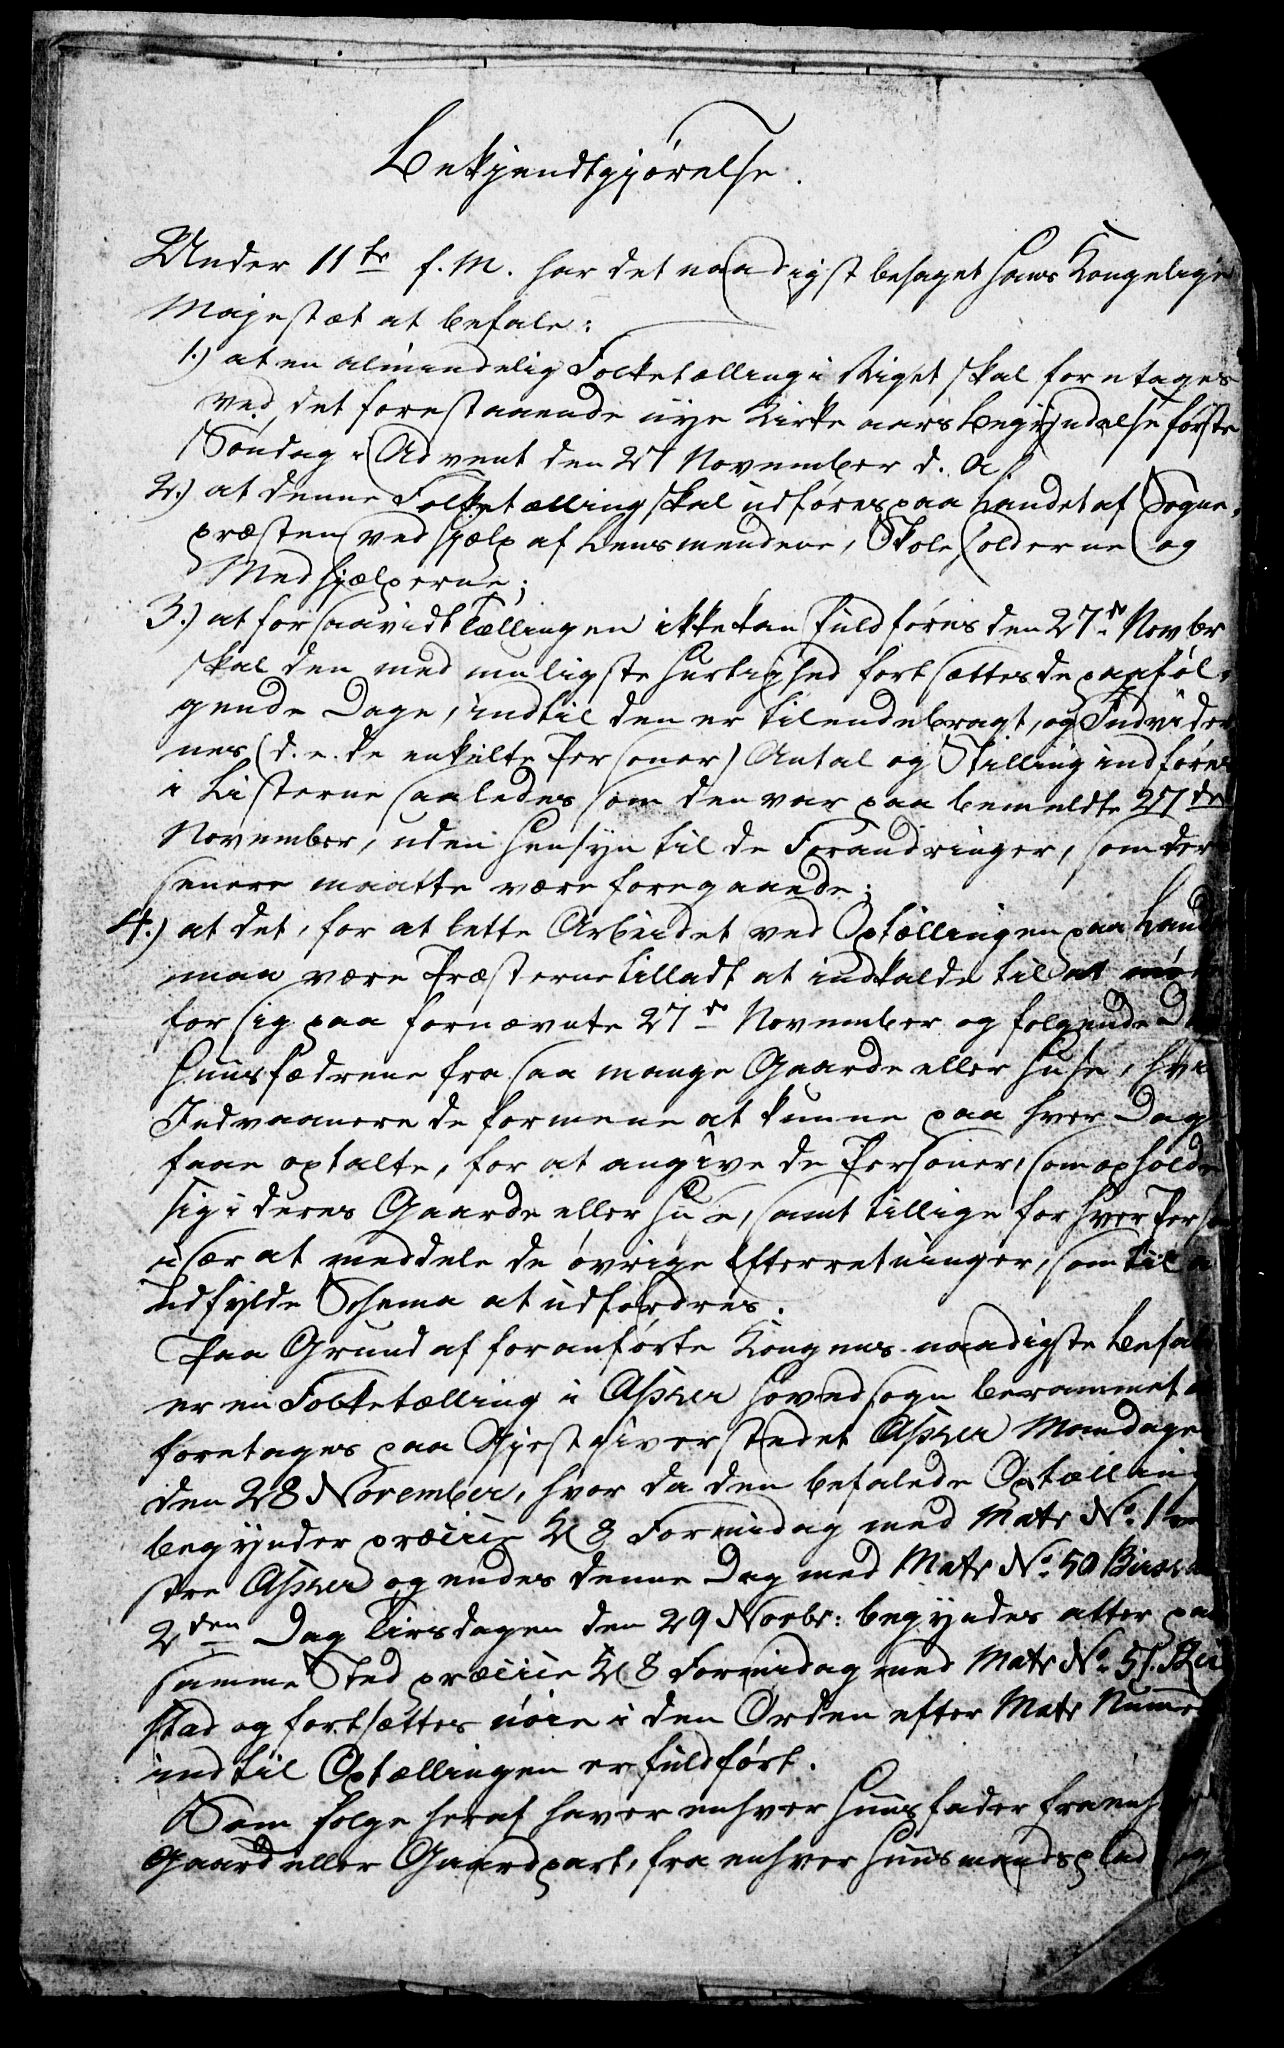 Bekjendtgjørelse.
Under 11te f. M. har det naadigst behaget Hans Kongelige
Majestæt at befale:
1.) at en almindelig Folketælling i Riget skal foretages
ved det forestaaende nye Kirke aars Begyndelse første
Søndag i Advent den 27 November d. A.
2.) at denne Folketælling skal udføres paa Landet af Sogne-
præsten ved Hjælp af Lensmændene, Skoleholderne og
Medhjælperne;
3.) at forsaavidt Tællingen ikke kan fuldføres den 27de Novbr
skal den med muligste Hurtighed fortsættes de paaføl-
gende Dage, indtil den er tilendebragt, og Individer
nes (d. e. de enkelte Personer) Antal og Stilling indføres
i Listerne saaledes som den var paa bemeldte 27de
November, uden Hensyn til de Forandringer, som der
senere maatte være foregaaede;
4.) at det, for at lette Arbeidet ved Optællingen paa Land
maa være Præsterne tilladt at indkalde til at
for sig paa fornævnte 27de November og følgende
Huusfædrene fra saa mange Gaarde eller Huse, hvis
Indvaanere de formene at kunne paa hver Dag
faae optalte, for at angive de Personer, som opholde
sig i deres Gaarde eller Huse, samt tillige for hver Perso
især at meddele de øvrige Efterretninger, som til
udfylde Schema at udfordres.
Paa Grund af foranførte Kongens naadigste Befal
er en Folketælling i Asker Hovedsogn berammet
foretages paa Gjestgiverstedet Asker Mandagen
den 28 November, hvor da den befalede Optælling
begynder præcise Kl 8 Formidag med Matr No. 1
stre Asker og endes denne Dag med Matr No. 50
2den Dag Tirsdagen den 29 Novbr: begyndes atter paa
samme Sted præcise Kl 8 Formidag med Matr No. 51.
stad og fortsættes nøie i den Orden efter Matr Numer
indtil Optællingen er fuldført.
Som følge heraf haver enhver Huusfader fra enh
Gaard eller Gaardpart, fra enhver Huusmandsplad